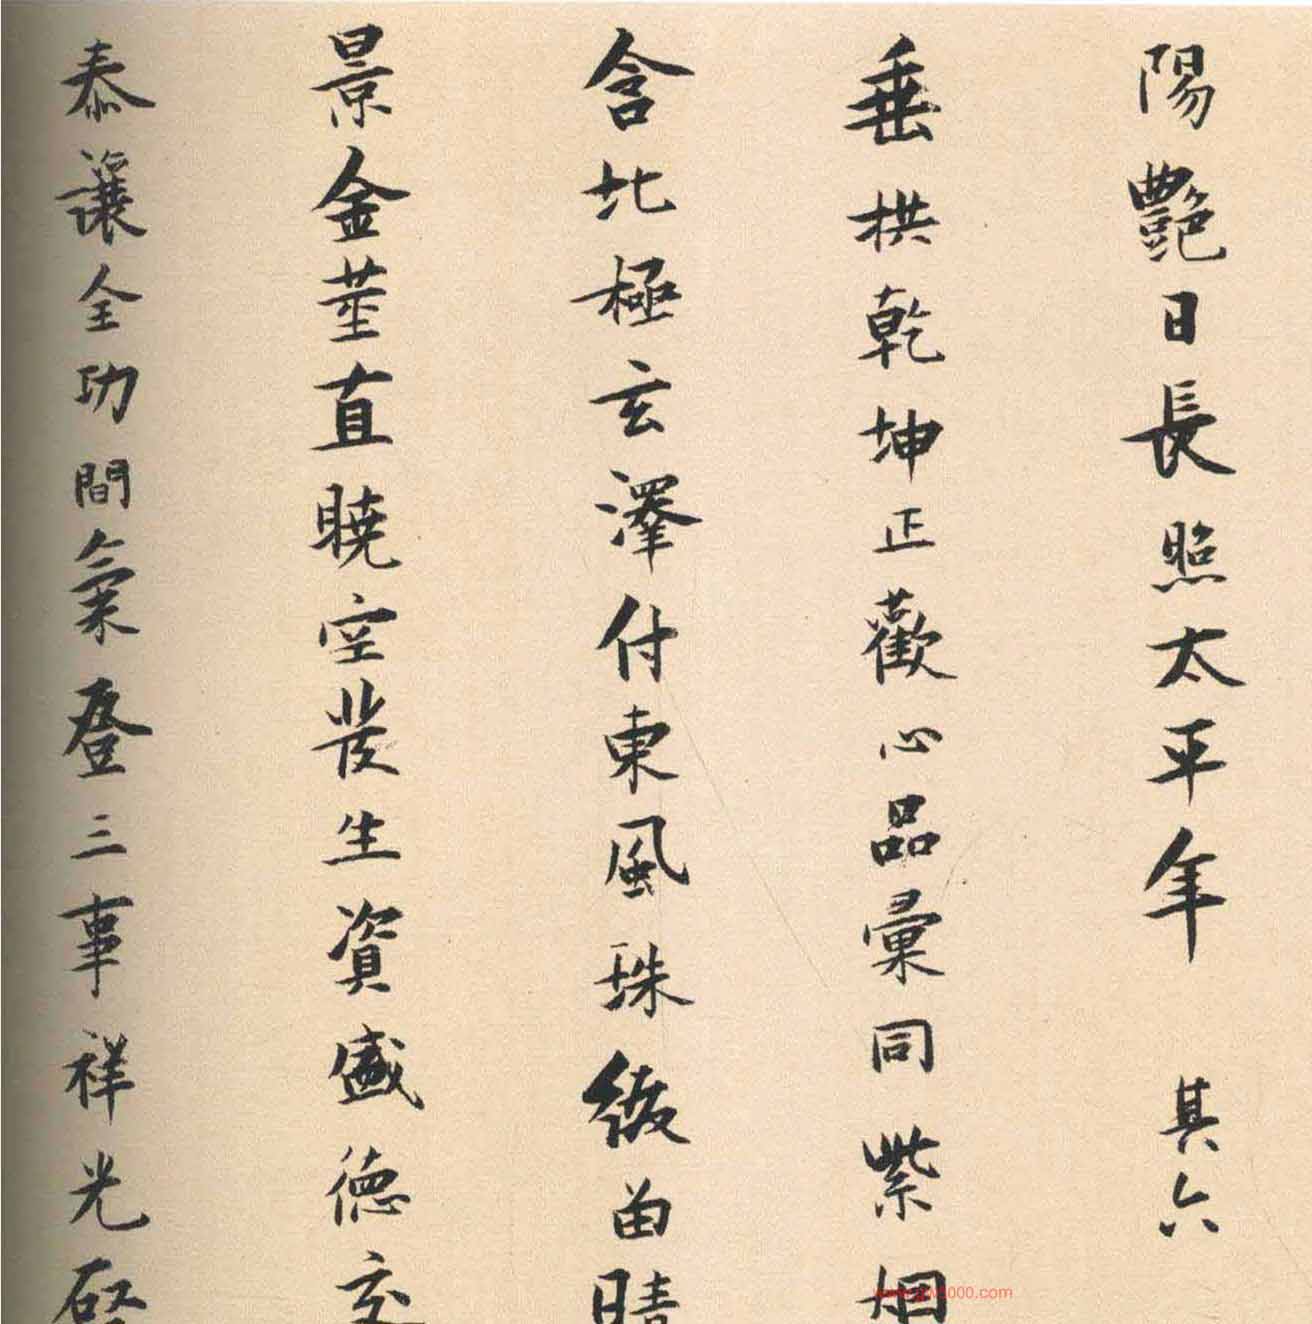 陽艷日長照太平年 其六
垂拱乾坤正歡心品彙同紫烟
含北極玄澤付東風珠綴留晴
景金莖直曉空發生資盛德交
泰讓全功間氣登三事祥光啓
www.gw1000.com